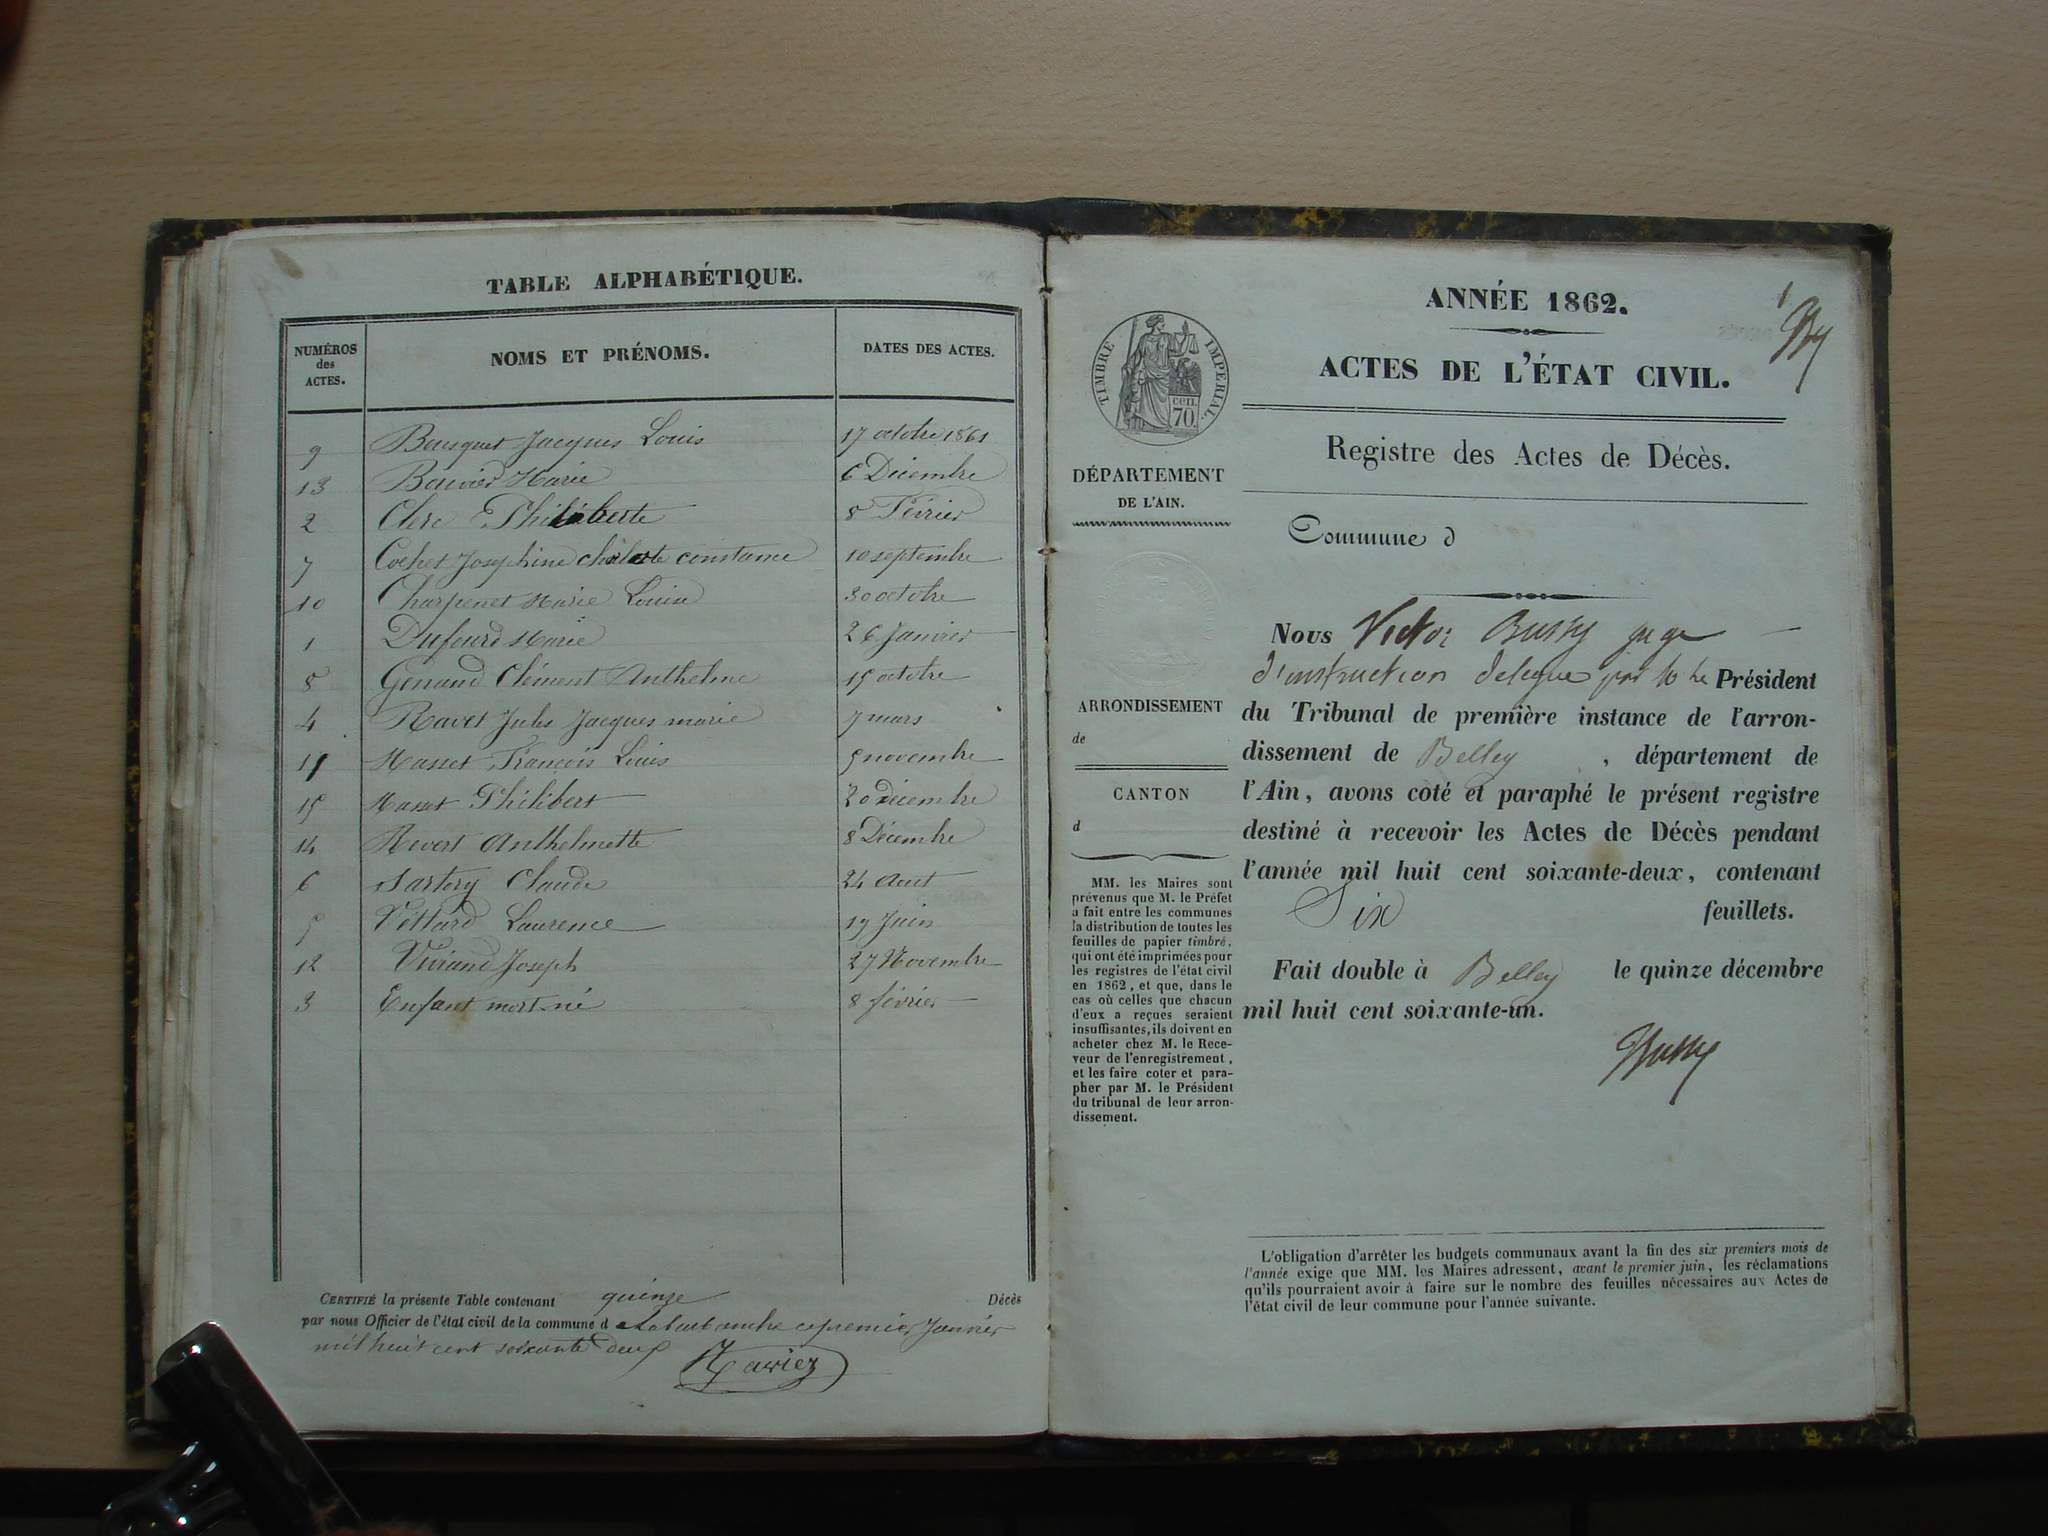 TABLE ALPHABÉTIQUE.
NUMÉROS des ACTES. NOMS ET PRÉNOMS. DATES DES ACTES.
9 Bousquet Jacques Louis 17 octobre 1861
13 Bouvier Marie 6 Décembre
2 Clerc Philiberte 8 Février
7 Cochet Josephine constance 10 septembre
10 Charpenet Marie Louise 30 octobre
1 Dufourd Marie 26 Janvier
8 Genand Clément Anthelme 15 octobre
4 Ravet Jules Jacques marie 7 mars
11 Masset François Louis 5 novembre
15 Masset Philibert 20 décembre
14 Revert Anthelmette 8 Décembre
6 Sartory Claude 24 Aout
5 Vettard Laurence 19 Juin
12 Viviand Joseph 27 Novembre
3 Enfant mort-né 8 février
CERTIFIÉ la présente Table contenant quinze Décès
par nous Officier de l'état civil de la commune d ce premier Janvier
mil huit cent soixante deux
ANNÉE 1862.
1
ACTES DE L'ÉTAT CIVIL.
Registre des Actes de Décès.
TIMBRE IMPÉRIAL.
cen. 70.
DÉPARTEMENT
DE L'AIN.
ARRONDISSEMENT
de
CANTON
d
MM. les Maires sont
prévenus que M. le Préfet
a fait entre les communes
la distribution de toutes les
feuilles de papier timbré,
qui ont été imprimées pour
les registres de l'état civil
en 1862, et que, dans le
cas où celles que chacun
d'eux a reçues seraient
insuffisantes, ils doivent en
acheter chez M. le Rece-
veur de l'enregistrement,
et les faire coter et para-
pher par M. le Président
du tribunal de leur arron-
dissement.
Commune d
Nous Victor Bussy juge
d'instruction delegue par Mr le Président
du Tribunal de première instance de l'arron-
dissement de Belley, département de
l'Ain, avons coté et paraphé le présent registre
destiné à recevoir les Actes de Décès pendant
l'année mil huit cent soixante-deux, contenant
Six feuillets.
Fait double à Belley le quinze décembre
mil huit cent soixante-un.
Bussy
L'obligation d'arrêter les budgets communaux avant la fin des six premiers mois de
l'année exige que MM. les Maires adressent, avant le premier juin, les réclamations
qu'ils pourraient avoir à faire sur le nombre des feuilles nécessaires aux Actes de
l'état civil de leur commune pour l'année suivante.